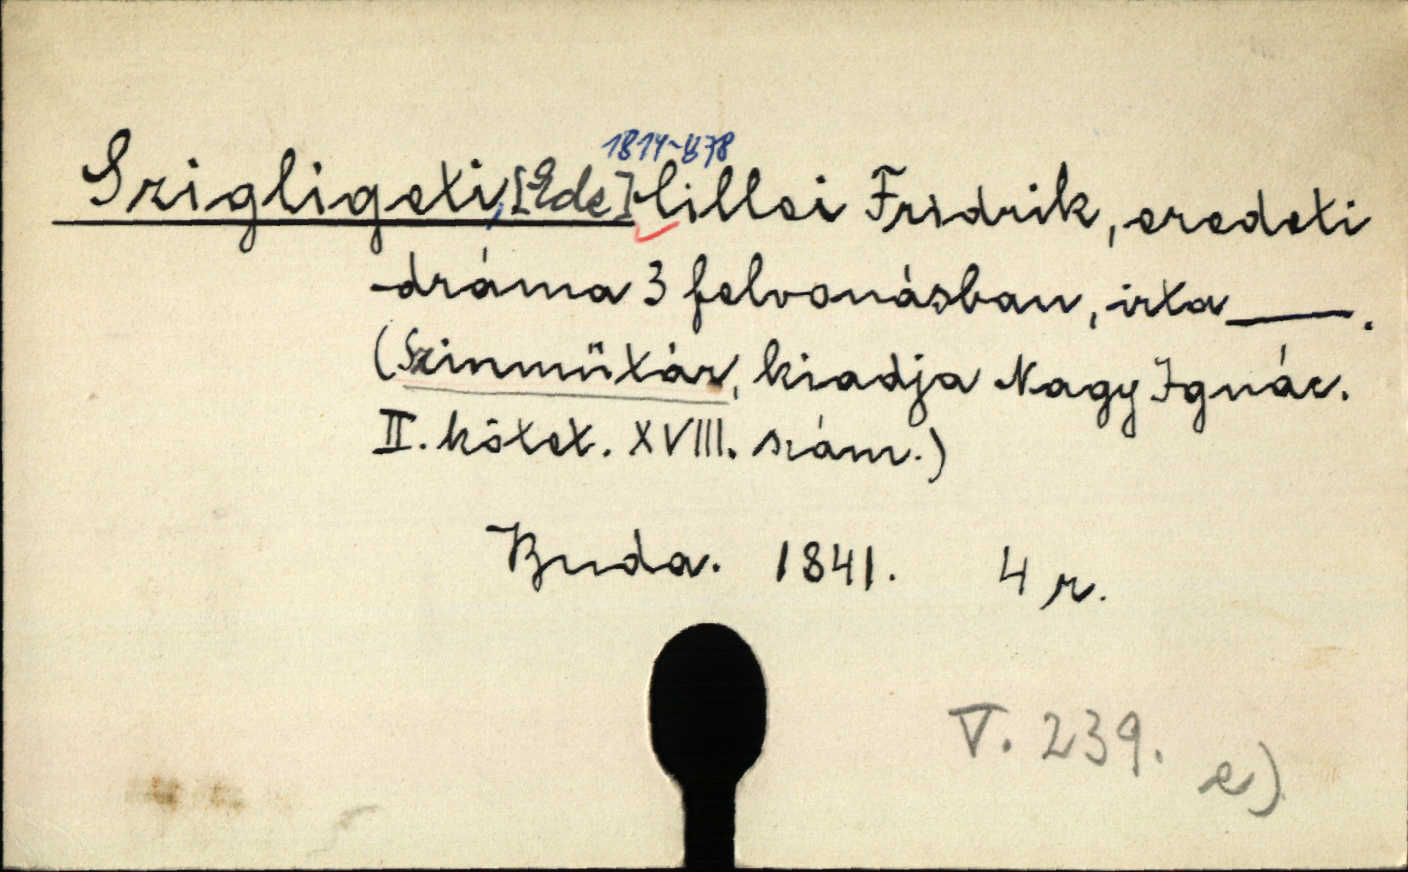 1814-878
Szigligeti, [Ede] Cillei Fridrik, eredeti
dráma 3 felvonásban, irta ___.
(Szinműtár, kiadja Nagy Ignác.
II. kötet. XVIII. szám.)
Buda. 1841. 4 r.
V. 239.
e)